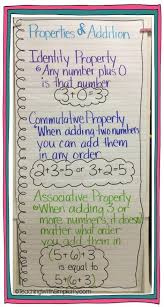 Properties of Addition
Identity Property
Any number plus 0
is that number
3+0=3
Commutative Property
*When adding two numbers
you can add them
in any order
2+3=5 or 3+2=5
Associative Property
*When adding 3 or
more numbers, it doesn't
matter what order
you add them in
(5+6)+3
is equal to
5+(6+3)
©TeachingwithSimplicity.com